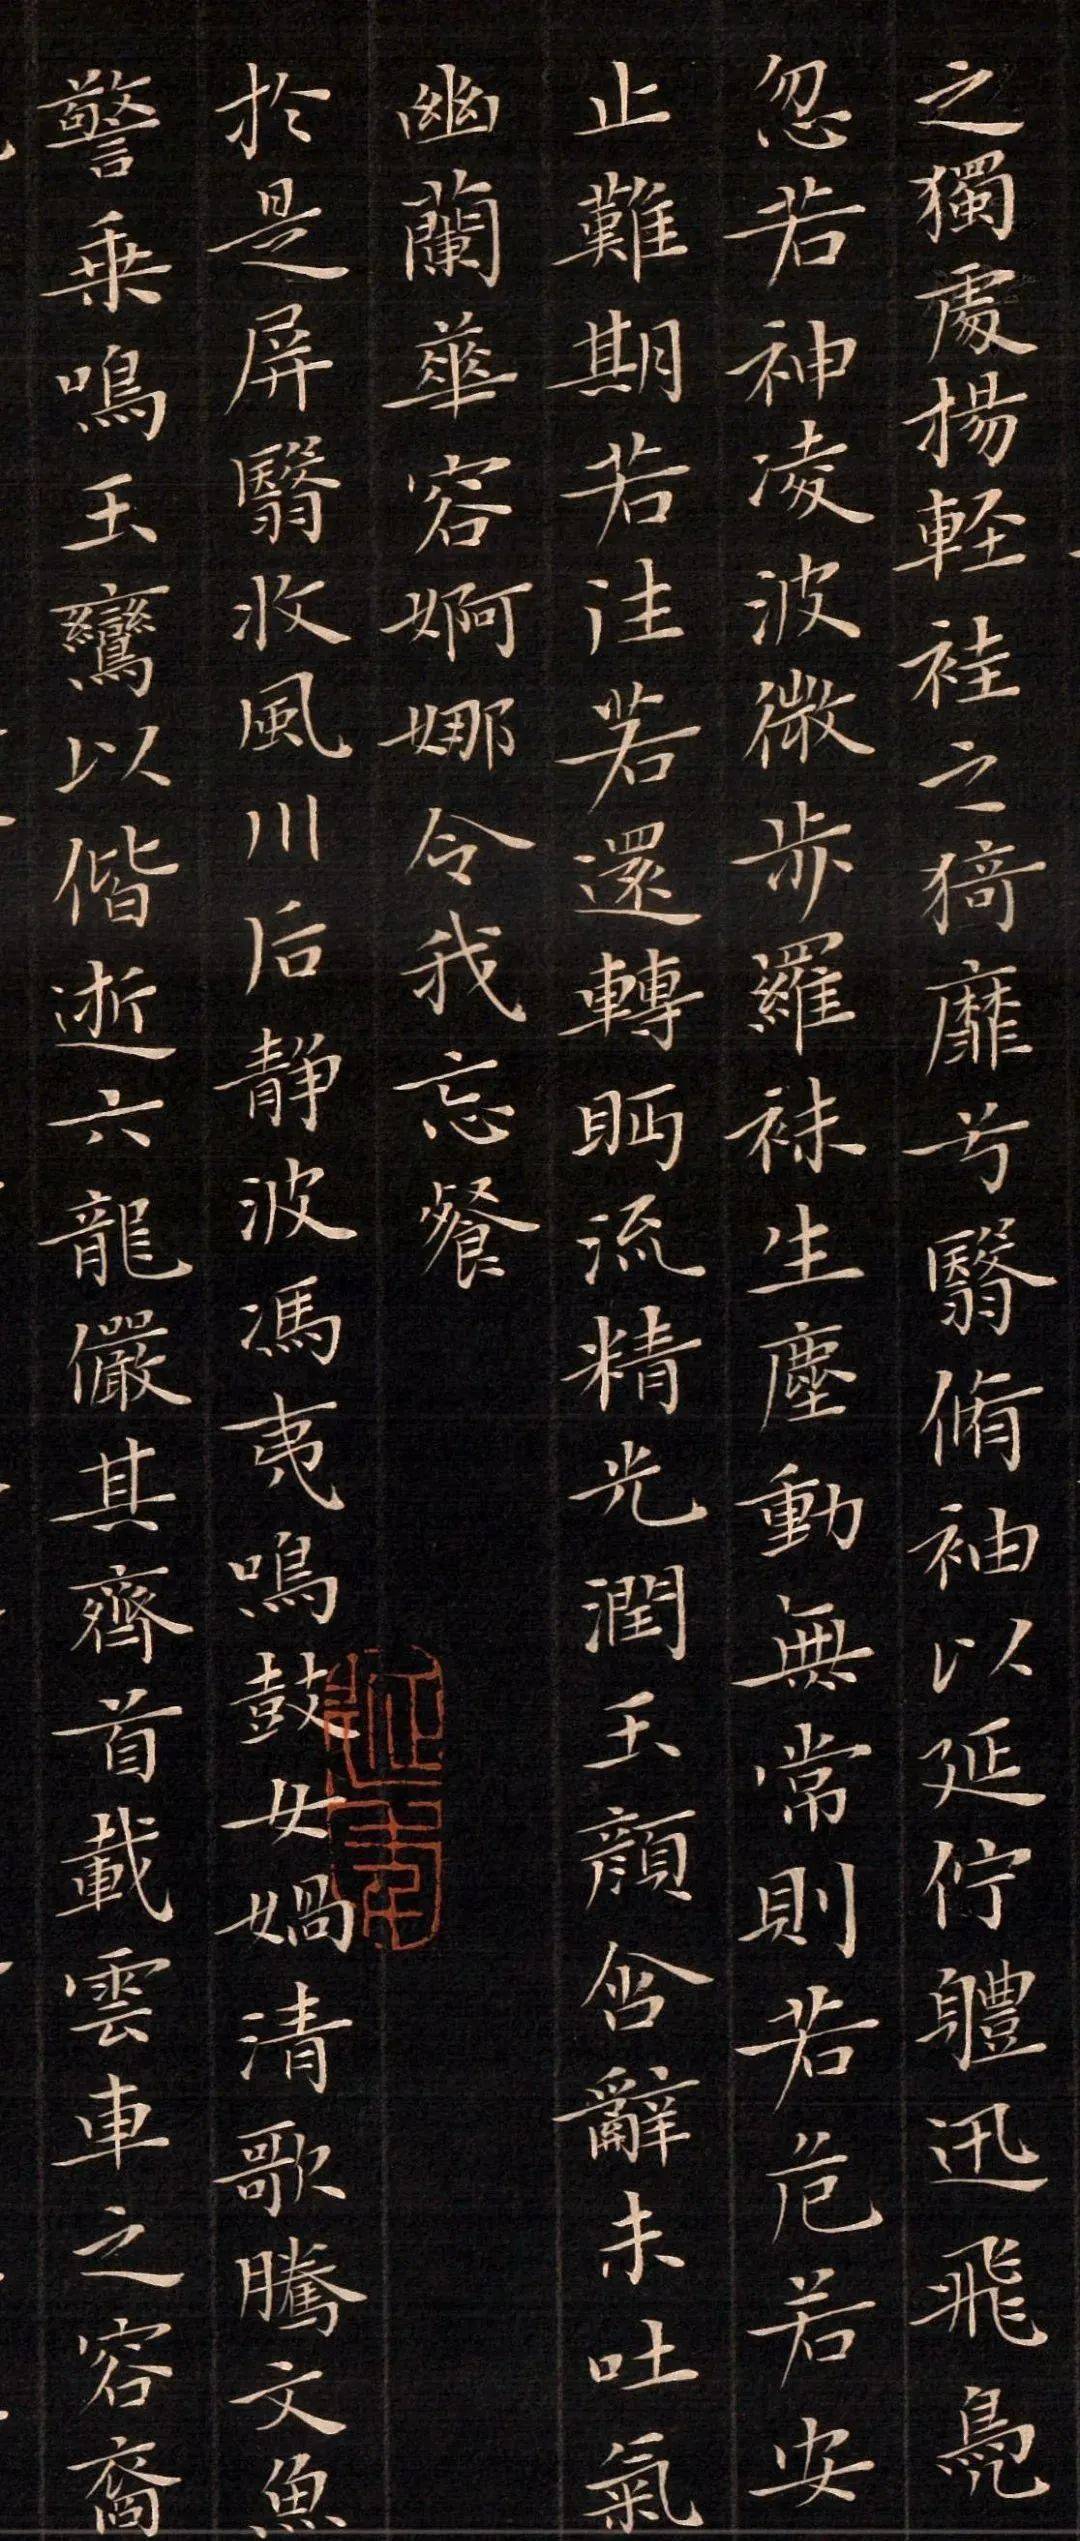 之獨處揚輕袿之猗靡兮翳脩袖以延佇體迅飛鳧
忽若神淩波微步羅袜生塵動無常則若危若安
止難期若往若還轉眄流精光潤玉顏含辭未吐氣
幽蘭華容婀娜令我忘餐
於是屏翳收風川后靜波馮夷鳴鼓女媧清歌騰文魚
警乗鳴玉鸞以偕逝六龍儼其齊首載雲車之容裔